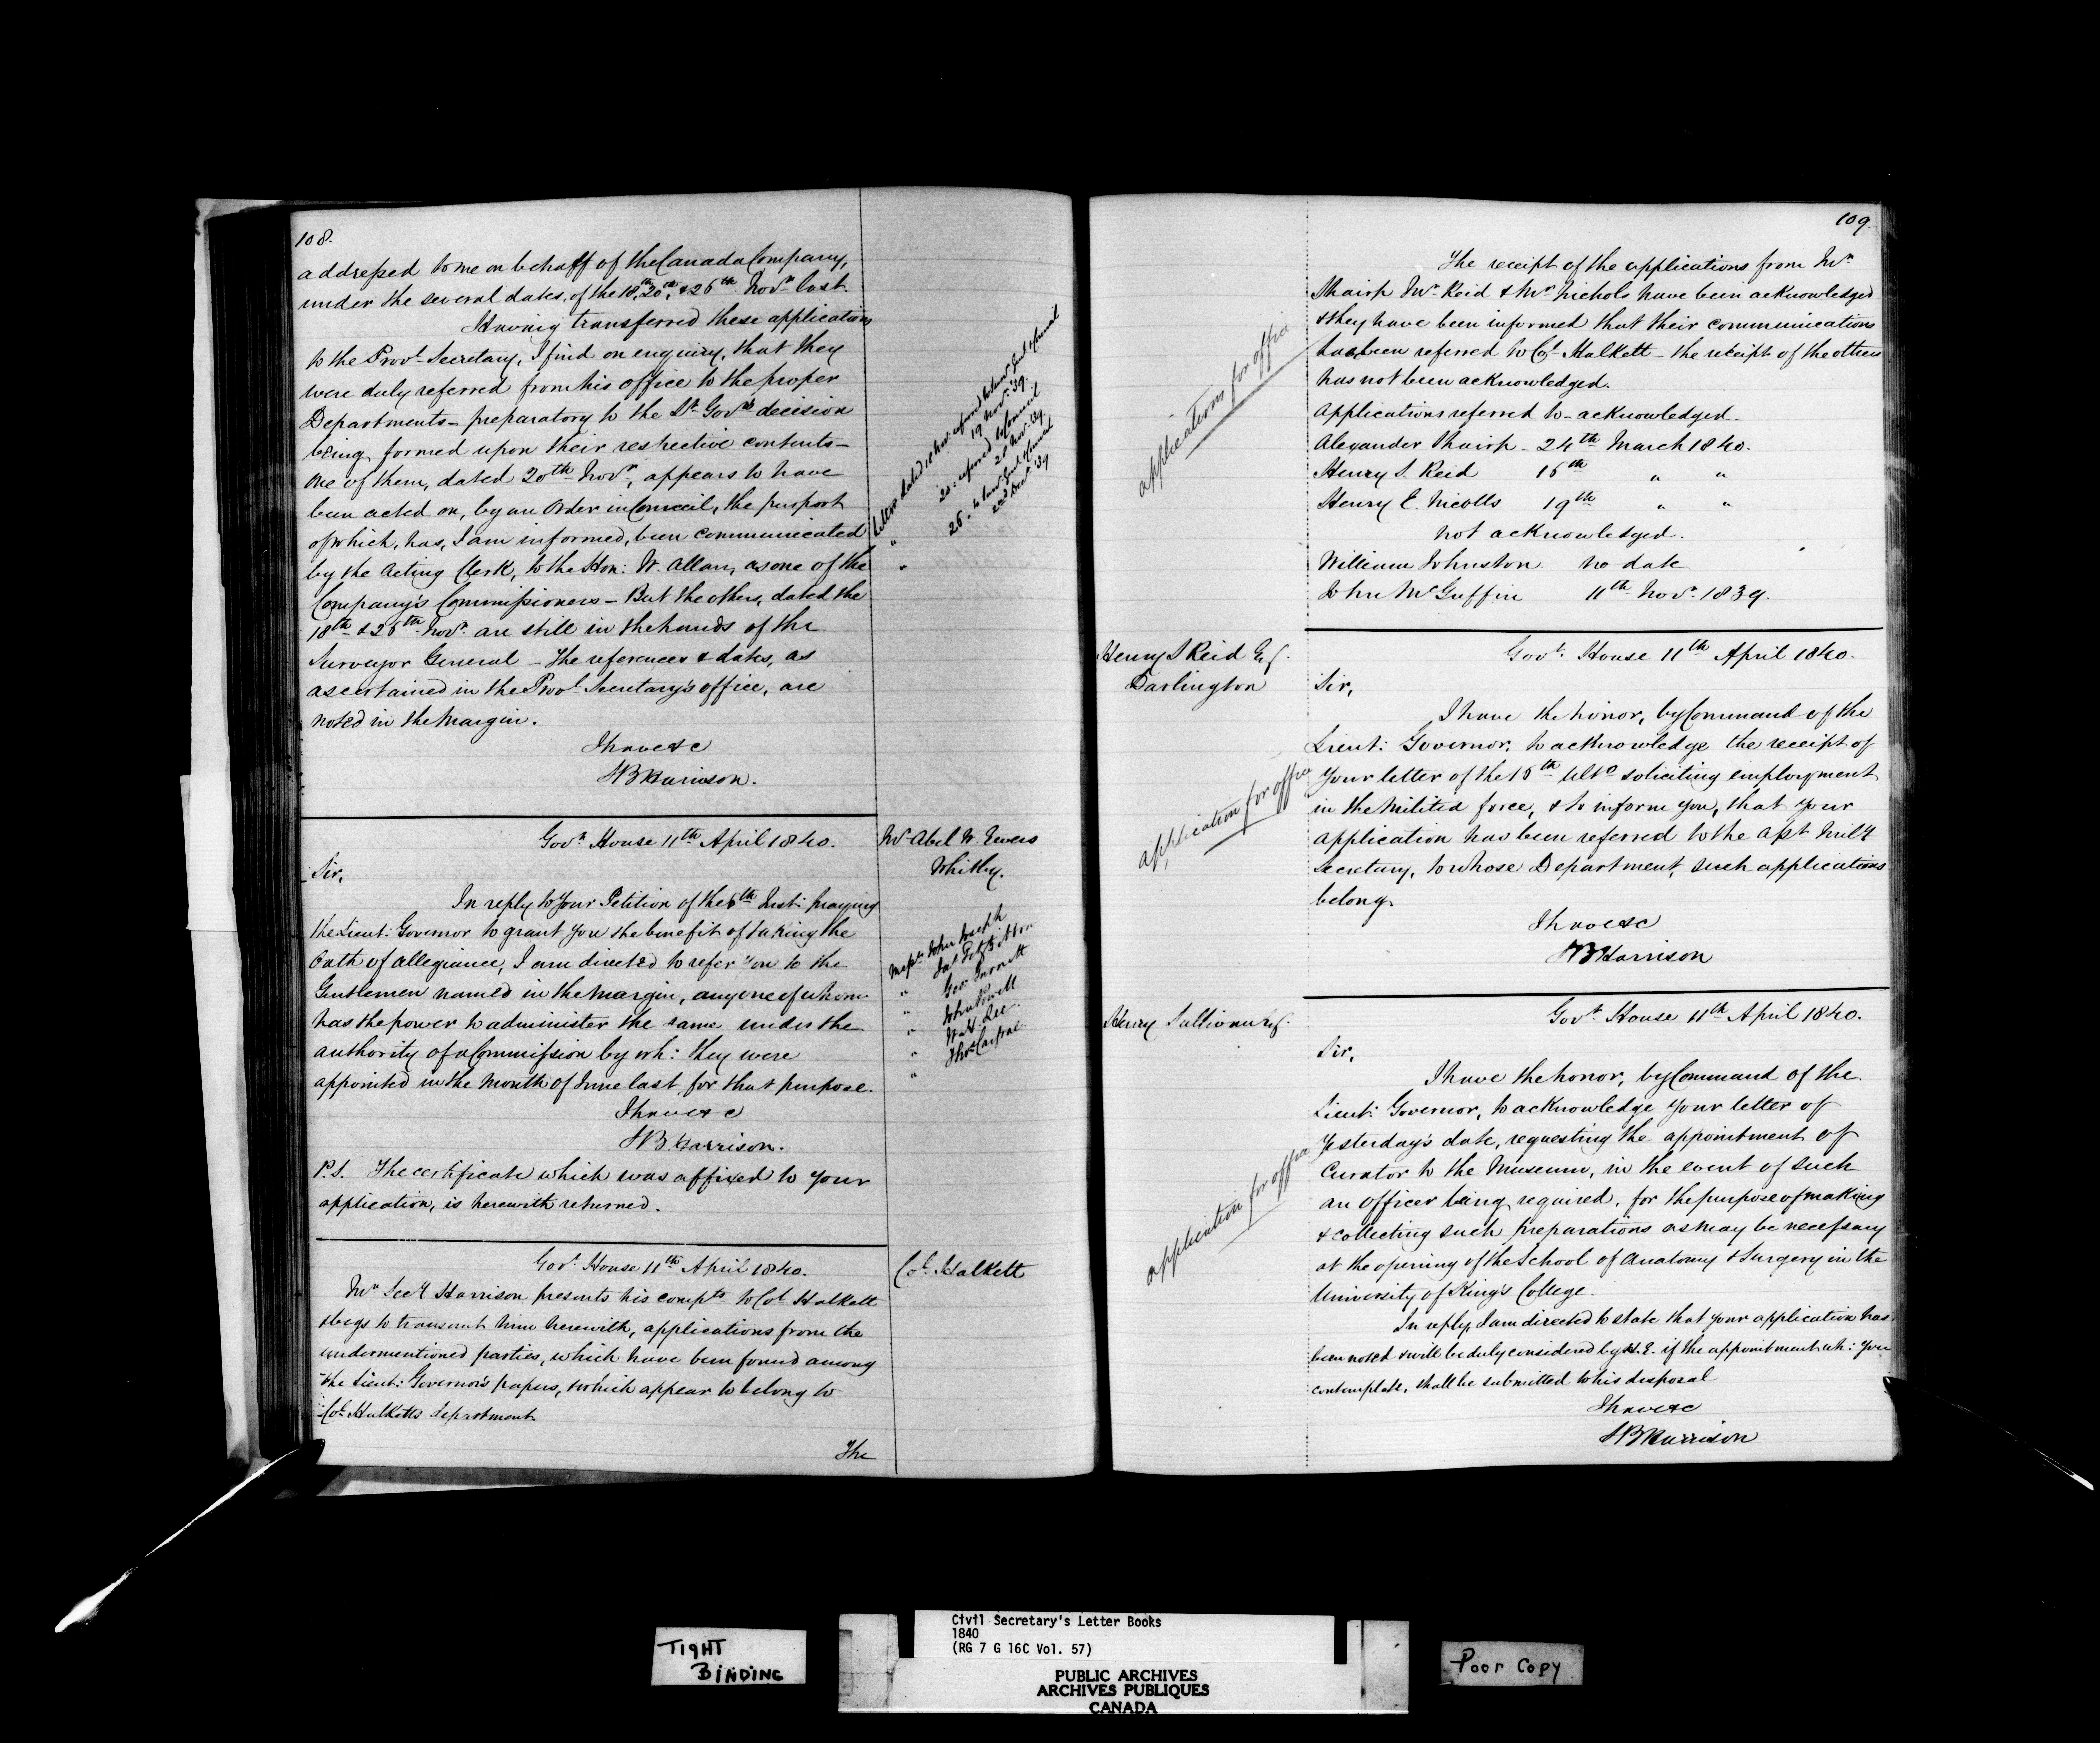 108.
addressed to me on behalf of the Canada Company,
under the several dates, of the 18th, 20th, & 26th Novr last.
Having transferred these applications
to the Provl Secretary, I find on enquiry, that they
were duly referred from his office to the proper
Departments - preparatory to the Lt Govrs decision
being formed upon their respective contents -
One of them, dated 20th Novr, appears to have
been acted on, by an Order in Council, the purport
of which, has, I am informed, been communicated
by the Acting Clerk, to the Hon: W. Allan, as one of the
Company's Commissioners - But the others, dated the
18th & 26th Novr are still in the hands of the
Surveyor General - The references & dates, as
ascertained in the Provl Secretary's office, are
noted in the Margin.
I have &c
SB Harrison.
19 Nov. '39
20. referred to Council
28 Nov. '39
Govt House 11th April 1840.
Mr Abel W. Ewers
Whitby.
Sir,
In reply to Your Petition of the 6th Inst: praying
the Lieut: Governor to grant you the benefit of taking the
Oath of Allegiance, I am directed to refer you to the
Gentlemen named in the Margin, any one of whom
has the power to administer the same under the
authority of a Commission by wh: they were
appointed in the Month of June last for that purpose.
I have &c
SB Harrison.
P.S. The certificate which was affixed to your
application, is herewith returned.
Messrs John Joseph
" Jas FitzGibbon
" Geo Gurnett
" John Powell
" W. H. Lee
"
Govt House 11th April 1840.
Col. Halkett
Mr Secy Harrison presents his compts to Col Halkett
& begs to transmit him herewith, applications from the
undermentioned parties, which have been found among
the Lieut: Governor's papers, & which appear to belong to
Col. Halketts department
The
109
applications for office
The receipt of the applications from Mr
Shairp Mr Reid & Mr Nichols have been acknowledged
& they have been informed that their communications
had been referred to Col Halkett - the receipt of the others
has not been acknowledged.
Applications referred to - acknowledged -
Alexander Shairp - 24th March 1840.
Henry S. Reid 16th " "
Henry E. Nicolls 19th " "
not acknowledged.
William Johnston no date
John McGuffin 11th Novr 1839.
Henry S Reid Esq.
Darlington
Govt. House 11th April 1840.
Sir,
application for office
I have the honor, by Command of the
Lieut: Governor, to acknowledge the receipt of
Your letter of the 16th Ulto soliciting employment
in the Militia force, & to inform you, that your
application has been referred to the Asst Mily
Secretary, to whose Department, such applications
belong.
I have &c
SB Harrison
Henry Sullivan Esq.
Govt. House 11th April 1840.
Sir,
application for office
I have the honor, by Command of the
Lieut: Governor, to acknowledge your letter of
Yesterday's date, requesting the appointment of
Curator to the Museum, in the event of such
an officer being required, for the purpose of making
& collecting such preparations as may be necessary
at the opening of the School of Anatomy & Surgery in the
University of King's College.
In reply I am directed to state that your application has
been noted & will be duly considered by H. E. if the appointment wh: you
contemplate, shall be submitted to his disposal
I have &c
SB Harrison
TIGHT
BINDING
Civil Secretary's Letter Books
1840
(RG 7 G 16C Vol. 57)
PUBLIC ARCHIVES
ARCHIVES PUBLIQUES
CANADA
Poor Copy